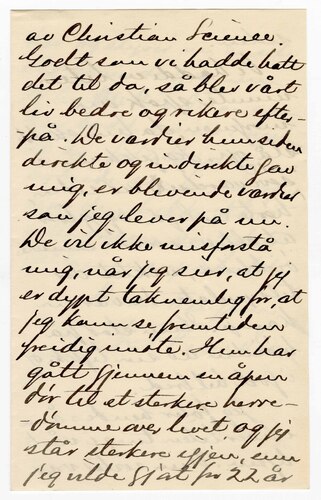 av Christian Science.
Godt som vi hadde hatt
det til da, så blev vårt
liv bedre og rikere efter-
på. De værdier hun siden
direkte og indirekte gav
mig, er blivende værdier
som jeg lever på nu.
De vil ikke misforstå
mig, når jeg sier, at jeg
er dypt taknemlig for, at
jeg kann se fremtiden
freidig imøte. Hun har
gått gjennem en åpen
dør til et sterkere herre-
dømme over livet og jeg
står sterkere igjen, enn
jeg vilde gjort for 22 år